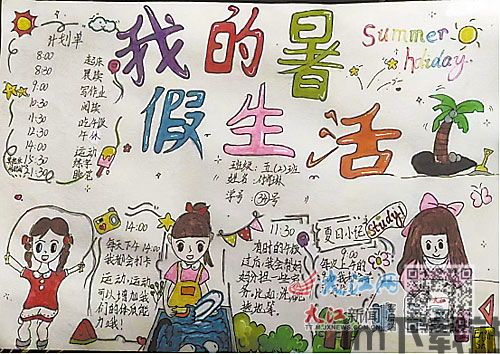 我的暑
假生活
Summer
holiday
计划单
8:00 起床
8:30 晨读
9:00 写作业
10:30 阅读
11:30 吃午饭
12:30 午休
14:00 运动
15:30 练字
21:30 晚安
班级:五(2)班
姓名:
学号:39号
14:00
每天下午14:00
我都会打卡
运动,运动
可以增加我
们的体质能
力哦!
11:30
有时的午饭
过后,我会帮妈
妈分担一些家
务,比如:洗碗,
拖地等。
夏日小记
Study!
大江网
大江新闻